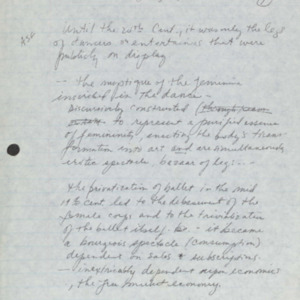 Until the 20th Cent., it was only the legs
of dancers or entertainers that were
publicly on display
-- the mystique of the feminine
inscribed in the dancer
Discursively constructed
to represent a purified essence
of femininity, enacting the body's trans-
formation into art and are simultaneously
erotic spectacle, bazaar of legs...
the privatization of ballet in the mid
19th Cent led to the debasement of the
female corps and to the trivialization
of the ballet itself. i.e. : it became
a bourgeois spectacle (consumption)
dependent on sales & subscriptions.
- inextricably dependent upon economies,
the economy.